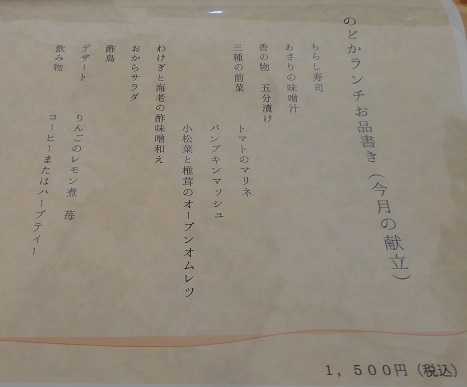 のどかランチお品書き（今月の献立）
ちらし寿司
あさりの味噌汁
香の物　五分漬け
三種の前菜　トマトのマリネ
パンプキンマッシュ
小松菜と椎茸のオーブンオムレツ
わけぎと海老の酢味噌和え
おからサラダ
酢鳥
デザート　りんごのレモン煮　苺
飲み物　コーヒーまたはハーブティー
１，５００円（税込）